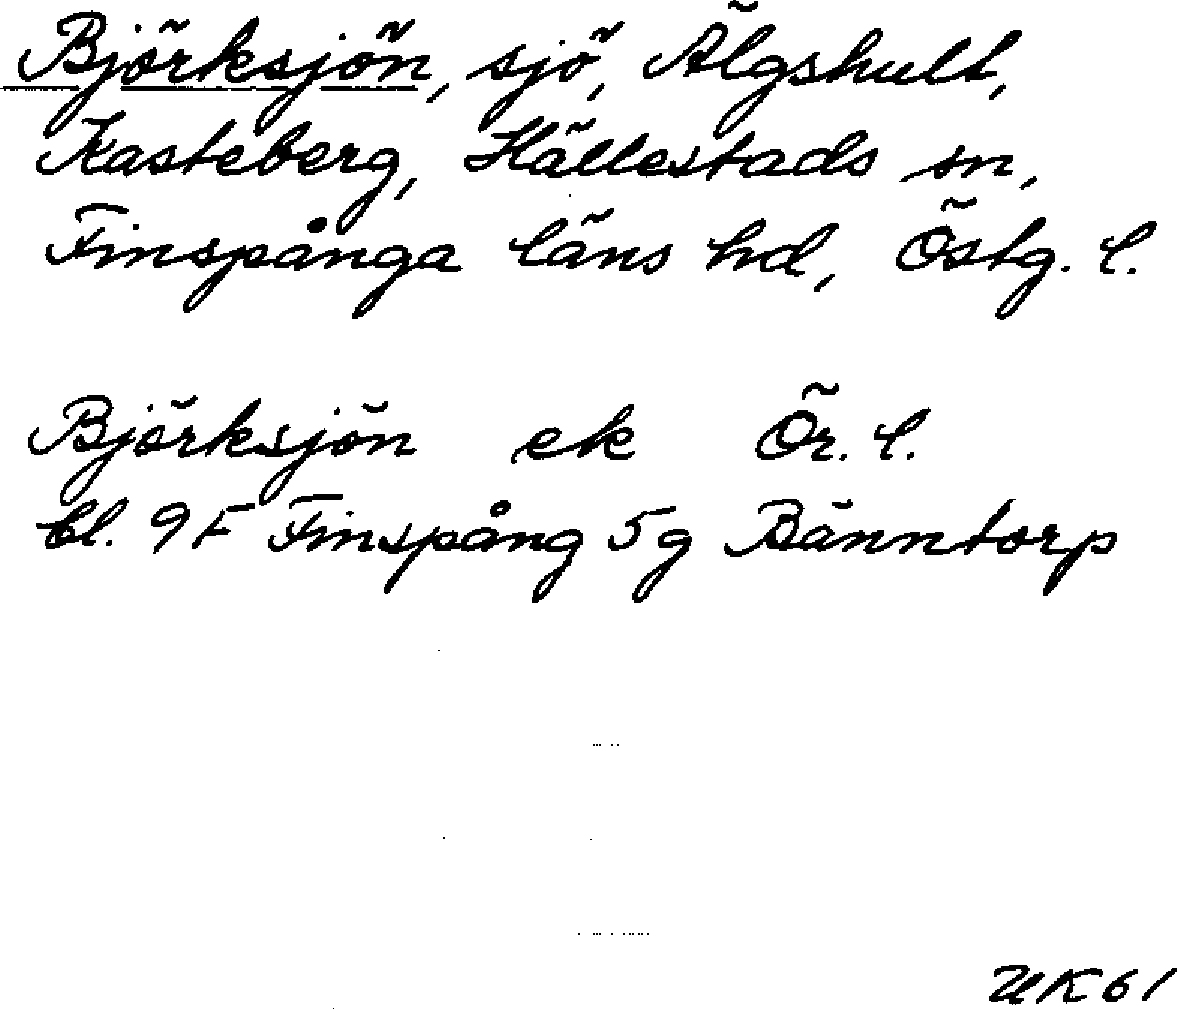 Björksjön, sjö, Älgshult,
Kasteberg, Hällestads sn,
Finspånga läns hd, Östg. l.
Björksjön ek Ör. l.
bl. 9F Finspång 5g Bänntorp
UK61